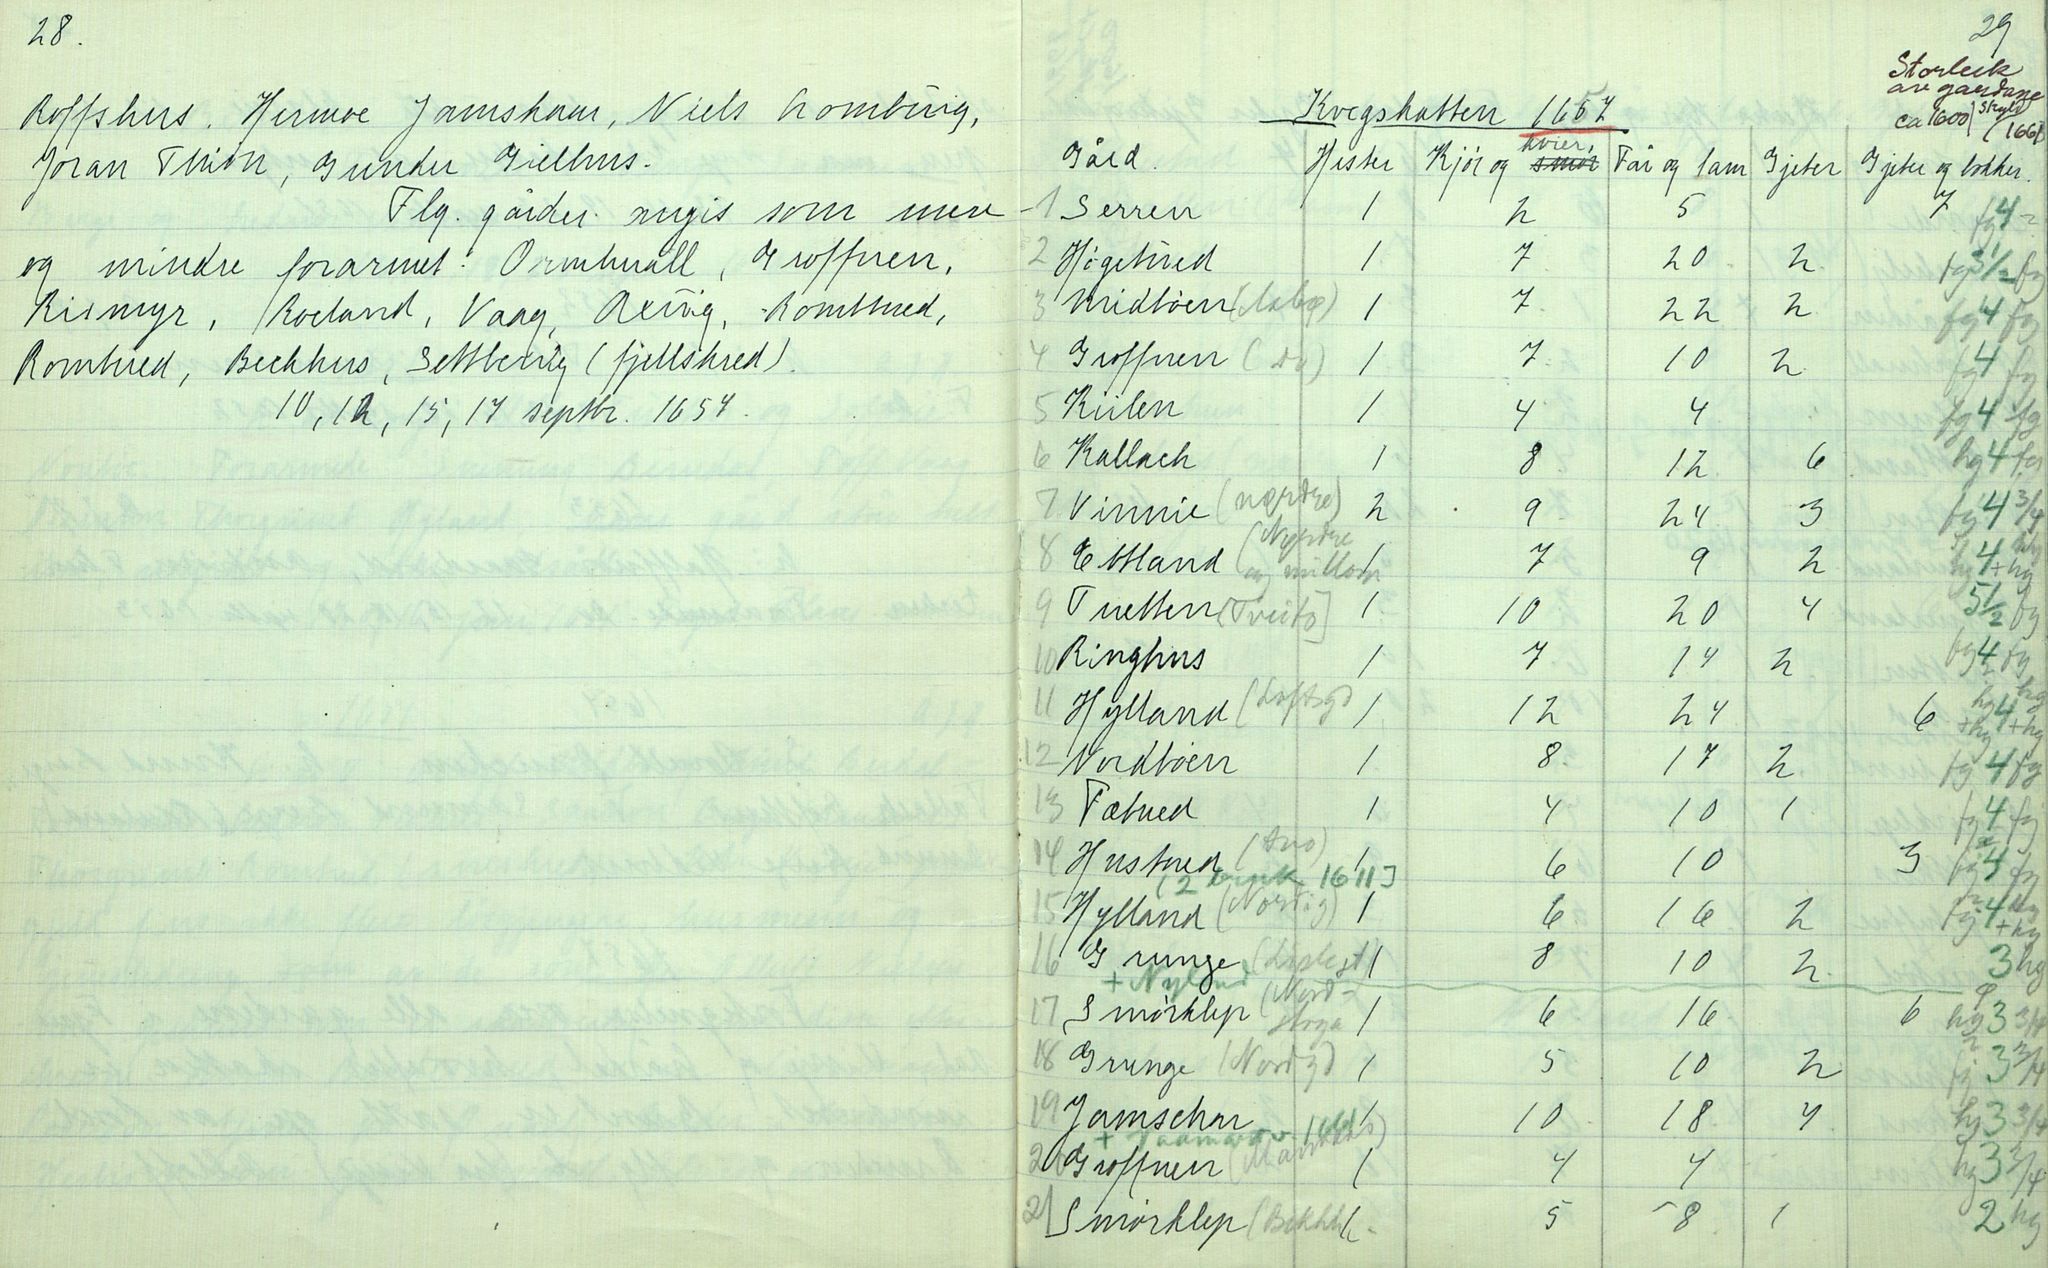 28.
Roffshus. Hermoe Jamskaar, Niels Romburig,
Joran Thión, Gunder Gielhus.
Flg. gårder angis som mere
og mindre forarmet: Ormbrull, Groffuen,
Rismyr, Roeland, Vaag, Bexvig, Rombtued,
Rombued, Beckhus, Settberig (fjellskred).
10, 12, 15, 17 septbr. 1657.
29
Storleik
av gardane
ca 1600 (Skyld 1661)
Kvegskatten 1657
Gård. Hester Kjør og kvier, Får og lam Gjeter Gjeter og bokker.
1 Serren 1 2 5 7 fg 4
2 Høgetued 1 7 20 2 fg 3 1/2 fg
3 Midbøen 1 7 22 2 fg 4 fg
4 Groffuen (do) 1 7 10 2 fg 4 fg
5 Kiilen 1 4 4 fg 4 fg
6 Kallach 1 8 12 6 hg 4 fg
7 Vinnie (nørdre) 2 9 24 3 fg 4 3/4
8 Ebtland (Nørdre og millom 1 7 9 2 hg 4 + hg
9 Tuetten (Tveito] 1 10 20 4 5 1/2 fg
10 Ringhus 1 7 14 2 fg 4 fg
11 Hylland (Loftsgd 1 12 24 6 hg 4 hg + hg
12 Nordbøen 1 8 17 2 fg 4 fg
13 Fætued 1 4 10 1 fg 4 fg
14 Hustued 1 6 10 3 fg 4 fg
(2 bruk 1611]
15 Hylland (Nordig) 1 6 16 2 fg 4 + hg
16 Grunge 1 8 10 2 3 hg
+ Nyland
17 Smørklep (Nordstoga 1 6 16 6 hg 3 3/4
18 Grunge (Nordgd 1 5 10 2 fg 3 3/4
19 Jamschar 1 10 18 4 hg 3 3/4
20 Groffuen 1 4 4 hg 3 3/4
21 Smørklep (Bekkh 1 5 8 1 2 hg